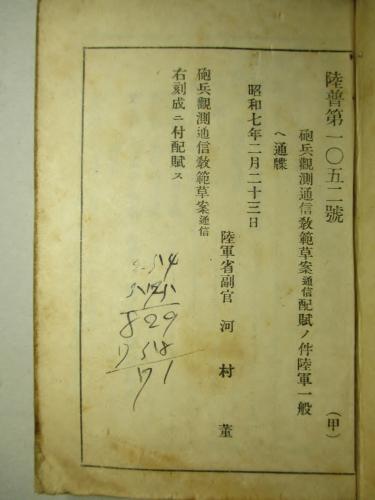 陸普第一〇五二號
砲兵觀測通信教範草案通信配賦ノ件陸軍一般
へ通牒
(甲)
昭和七年二月二十三日
陸軍省副官 河村 董
砲兵觀測通信教範草案通信
右刻成ニ付配賦ス
829
518